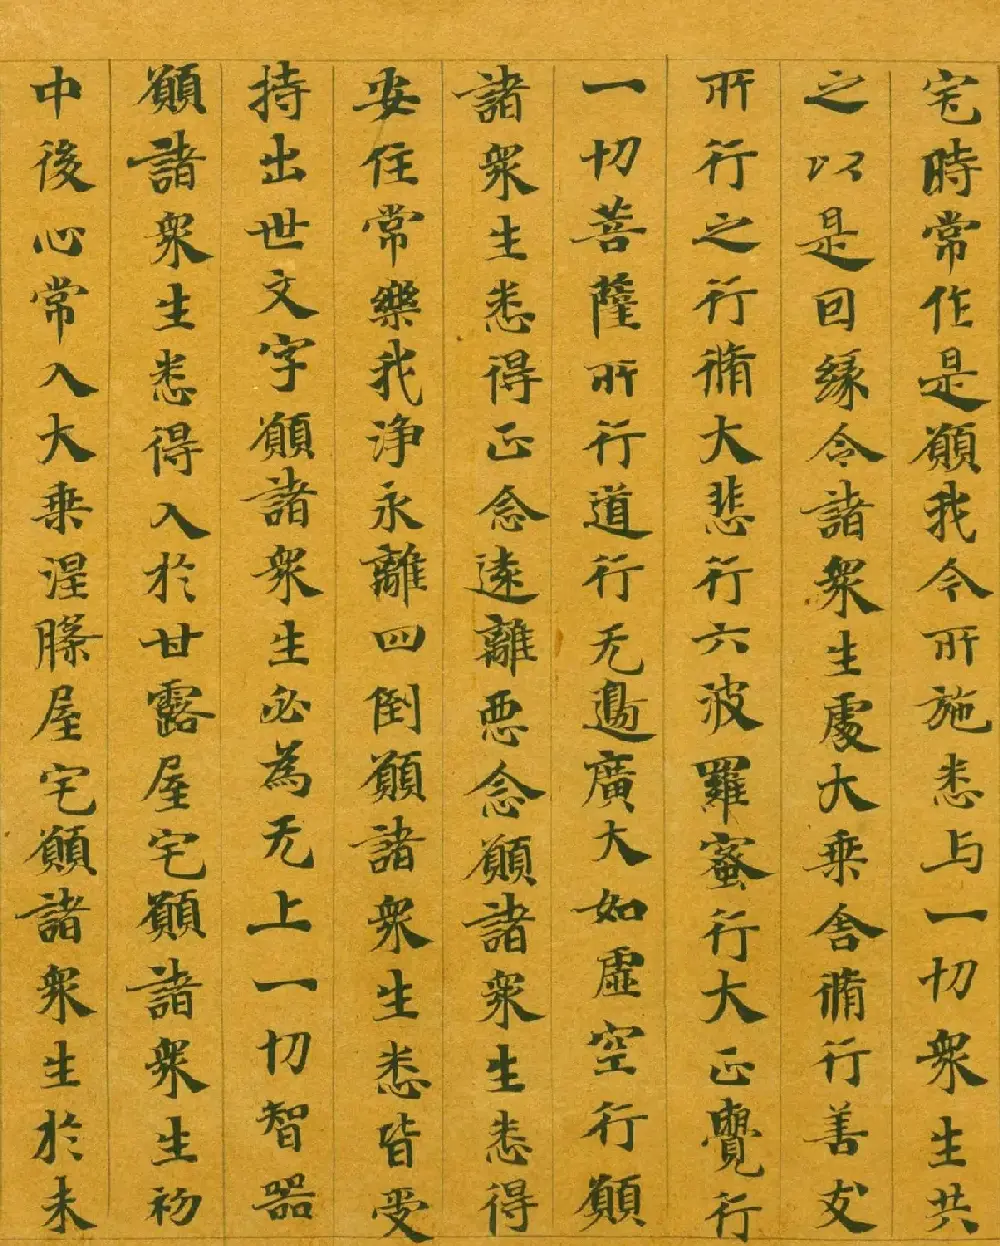 宅時常作是願我今所施悉与一切衆生共
之以是回緣令諸衆生處大乗舍脩行善友
所行之行脩大悲行六波羅蜜行大正覺行
一切菩薩所行道行无邊廣大如虛空行願
諸衆生悉得正念遠離惡念願諸衆生悉得
安住常樂我浄永離四倒願諸衆生悉皆受
持出世文字願諸衆生必為无上一切智器
願諸衆生悉得入於甘露屋宅願諸衆生初
中後心常入大乗涅槃屋宅願諸衆生於未